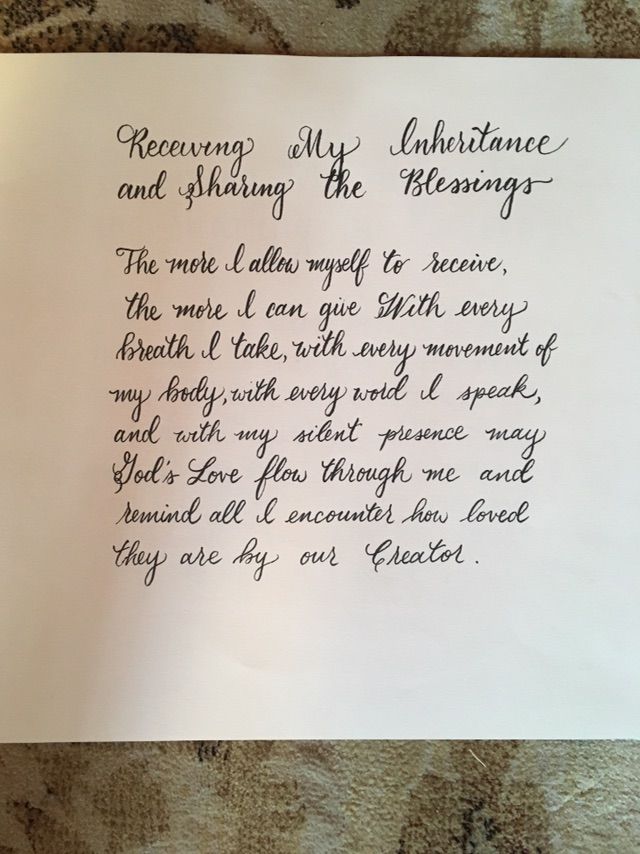 Receiving My Inheritance
and Sharing the Blessings
The more I allow myself to receive,
the more I can give With every
breath I take, with every movement of
my body, with every word I speak,
and with my silent presence may
God's Love flow through me and
remind all I encounter how loved
they are by our Creator.